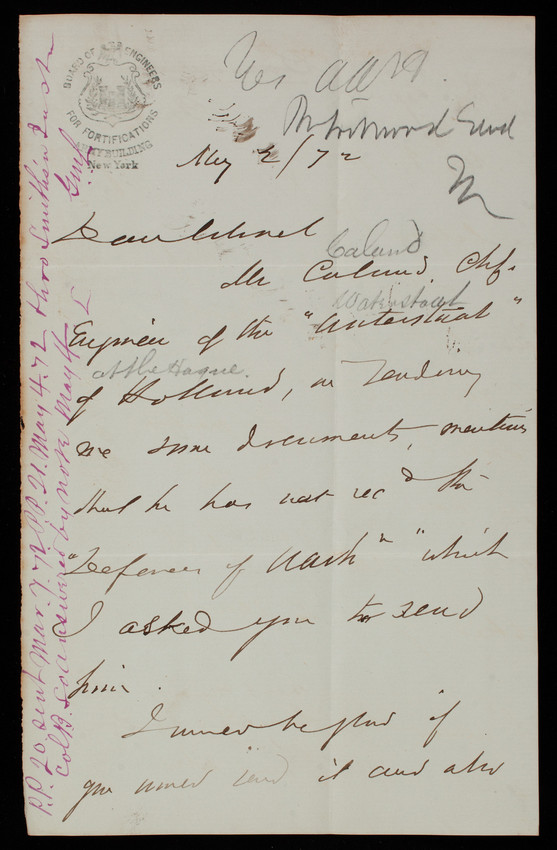 BOARD OF ENGINEERS
FOR FORTIFICATIONS
ARMY BUILDING
New York
Yes
May 2/72
Dear Colonel
Caland
Mr Caland, Chf.
Waterstaat
Engineer of the "Waterstaat"
at the Hague.
of Holland, in sending
me some documents, mentions
that he has not rec d the
"Defences of Wash n" which
I asked you to send
him.
I would be glad if
you would send it and also
P.P. 20 sent Mar. 7. 72 P.P. 21. May 4. 72 thro Smith'n Inst'n
Col B. so answered by note May 4